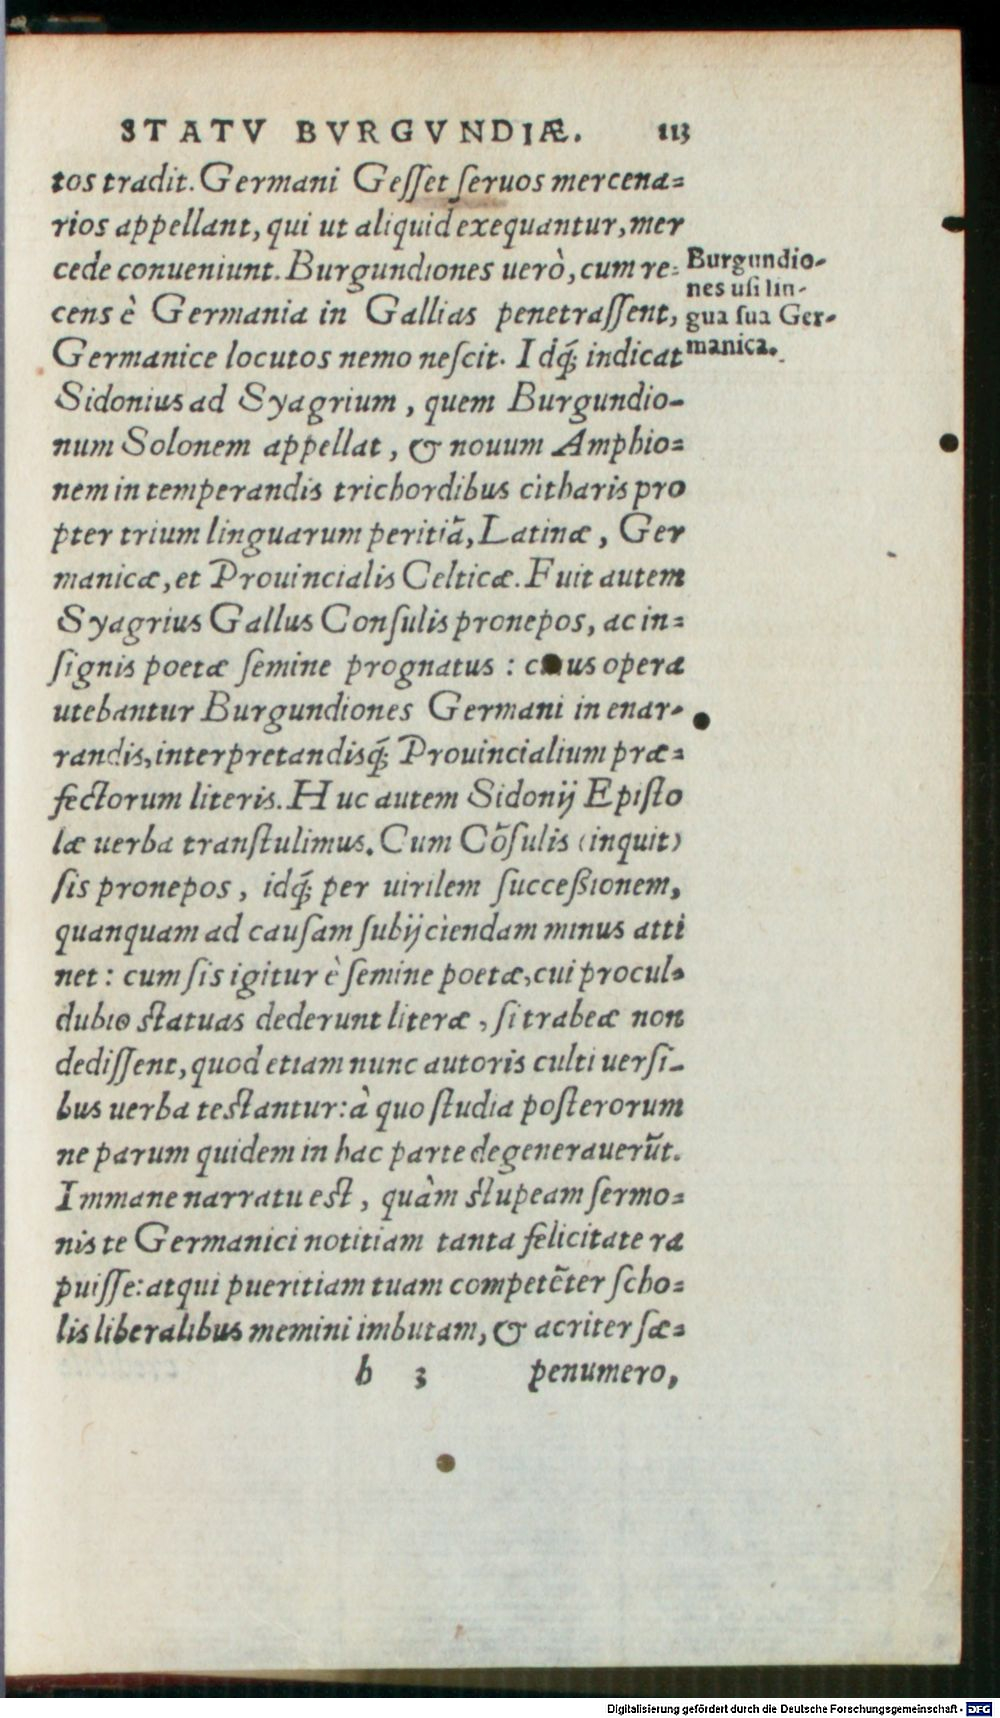 STATV BVRGVNDIÆ. 113
tos tradit. Germani Geſſet ſeruos mercena=
rios appellant, qui ut aliquid exequantur, mer
cede conueniunt. Burgundiones uerò, cum re=
cens è Germania in Gallias penetraſſent,
Germanice locutos nemo neſcit. Idq́; indicat
Sidonius ad Syagrium, quem Burgundio-
num Solonem appellat, & nouum Amphio=
nem in temperandis trichordibus citharis pro
pter trium linguarum peritiã, Latinæ, Ger
manicæ, et Prouincialis Celticæ. Fuit autem
Syagrius Gallus Conſulis pronepos, ac in=
ſignis poetæ ſemine prognatus: c us opera
utebantur Burgundiones Germani in enar-
randis, interpretandisq́; Prouincialium præ=
fectorum literis. Huc autem Sidonij Epiſto
læ uerba tranſtulimus. Cum Cõſulis (inquit)
ſis pronepos, idq́; per uirilem ſucceßionem,
quanquam ad cauſam ſubijciendam minus atti
net: cum ſis igitur è ſemine poetæ, cui procul-
dubio ſtatuas dederunt literæ, ſi trabeæ non
dediſſent, quod etiam nunc autoris culti uerſi-
bus uerba teſtantur: à quo ſtudia poſterorum
ne parum quidem in hac parte degenerauerũt.
Immane narratu eſt, quàm ſtupeam ſermo=
nis te Germanici notitiam tanta felicitate ra
puiſſe: atqui pueritiam tuam competẽter ſcho=
lis liberalibus memini imbutam, & acriter ſæ=
b 3 penumero,
Burgundio-
nes uſi lin-
gua ſua Ger-
manica.
Digitalisierung gefördert durch die Deutsche Forschungsgemeinschaft - DFG